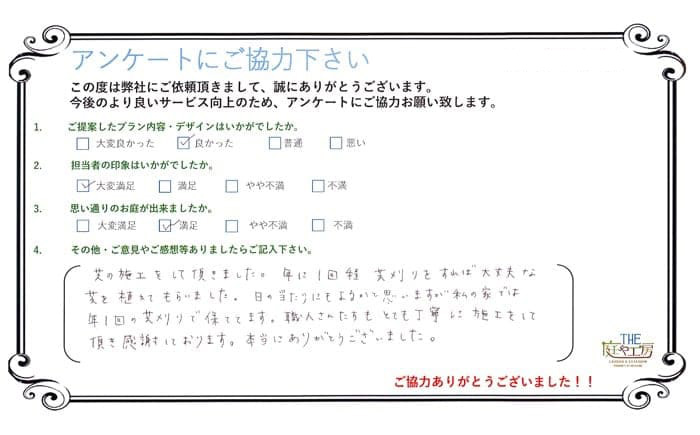 アンケートにご協力下さい
この度は弊社にご依頼頂きまして、誠にありがとうございます。
今後のより良いサービス向上のため、アンケートにご協力お願い致します。
1. ご提案したプラン内容・デザインはいかがでしたか。
大変良かった 良かった 普通 悪い
2. 担当者の印象はいかがでしたか。
大変満足 満足 やや不満 不満
3. 思い通りのお庭が出来ましたか。
大変満足 満足 やや不満 不満
4. その他・ご意見やご感想等ありましたらご記入下さい。
芝の施工をして頂きました。年に1回程 芝刈りをすれば大丈夫な
芝を植えてもらいました。日の当たりにもよるかと思いますが私の家では
年1回の芝刈りで保ててます。職人さんたちもとても丁寧に施工をして
頂き感謝しております。本当にありがとうございました。
THE
庭や工房
ご協力ありがとうございました！！